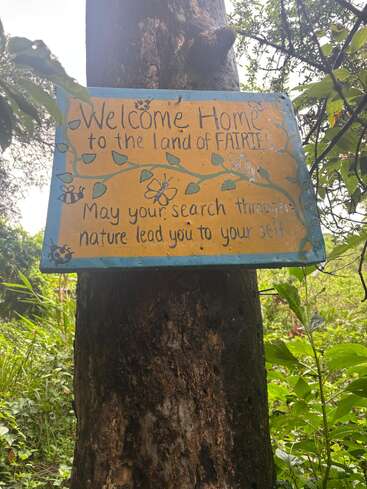 Welcome Home
to the land of FAIRIE!
May your search through
nature lead you to your self